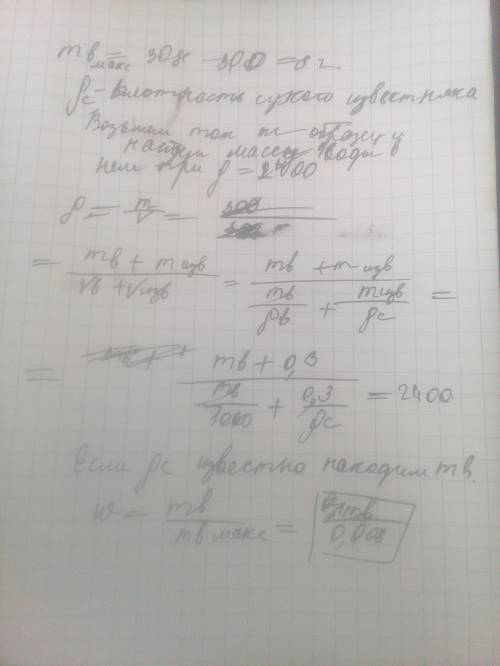 mв макс = 308 - 300 = 8 г.
ρс - плотность сухого известняка
Возьмем тот же образец и
найдем массу воды в
нем при ρ = 2400
ρ = m/V =
= (mв + m изв)/(Vв + V изв) = (mв + m изв)/(mв/ρв + m изв/ρс) =
= (mв + 0,3)/(mв/1000 + 0,3/ρс) = 2400
Если ρс известно находим mв.
w = mв/mв макс = mв/0,008